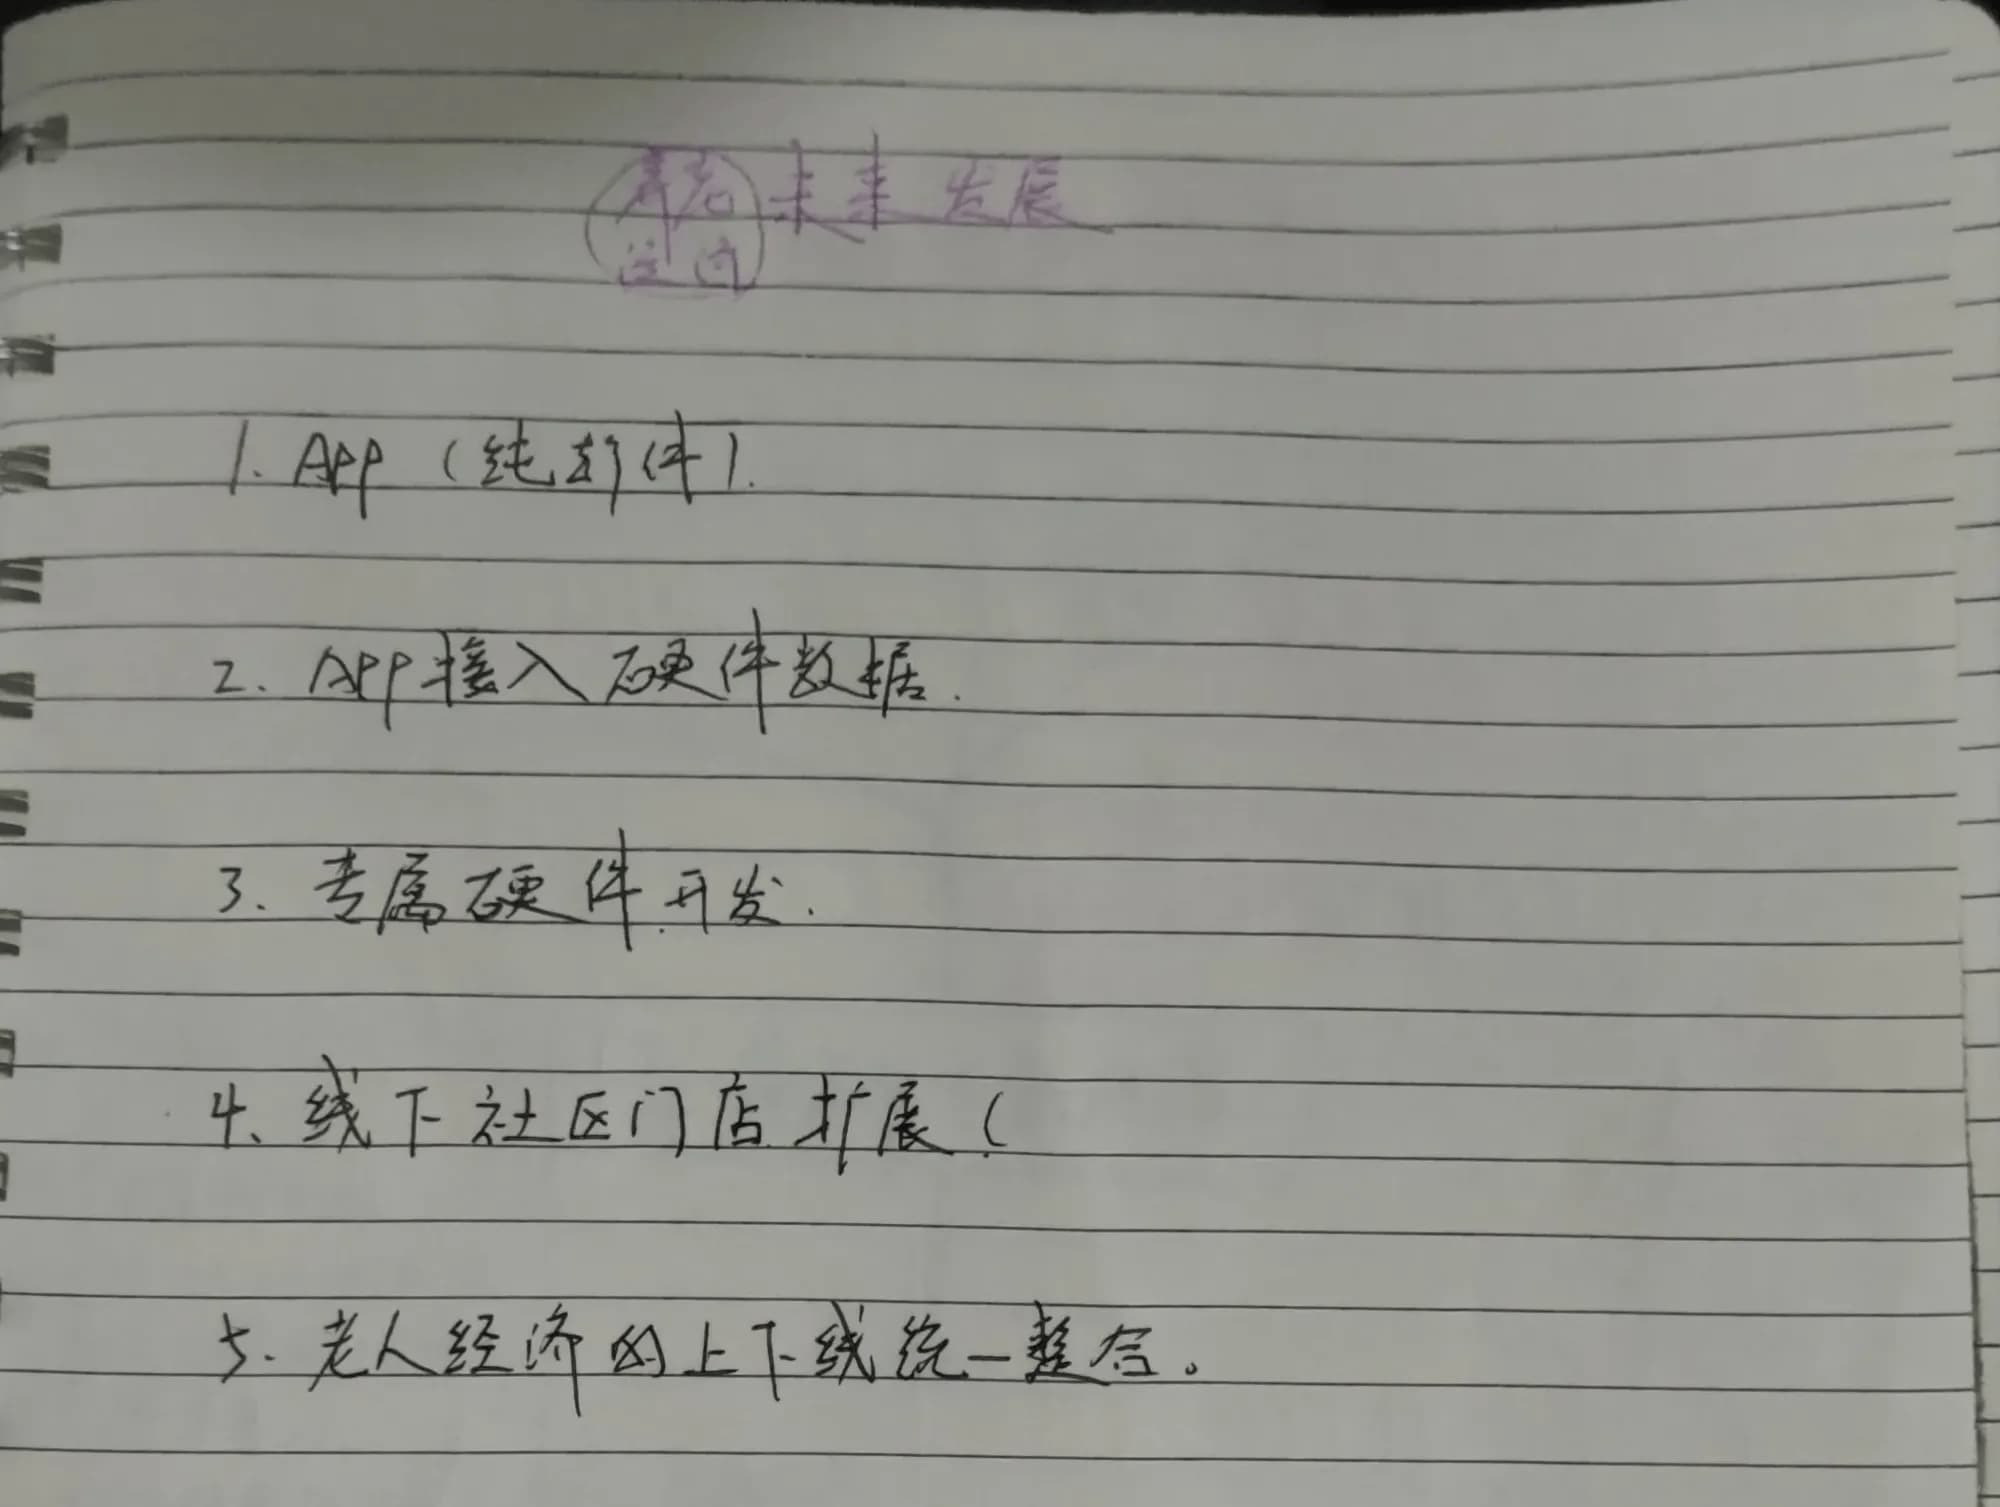 未来发展
1. App（纯软件）.
2. App接入硬件数据.
3. 专属硬件开发.
4、线下社区门店扩展（
5. 老人经济的上下线统一整合。